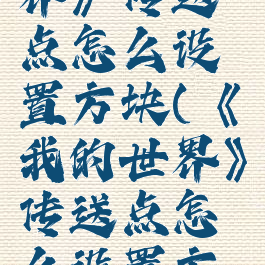 界》传送
点怎么设
置方块(《
我的世界》
传送点怎
么设置方